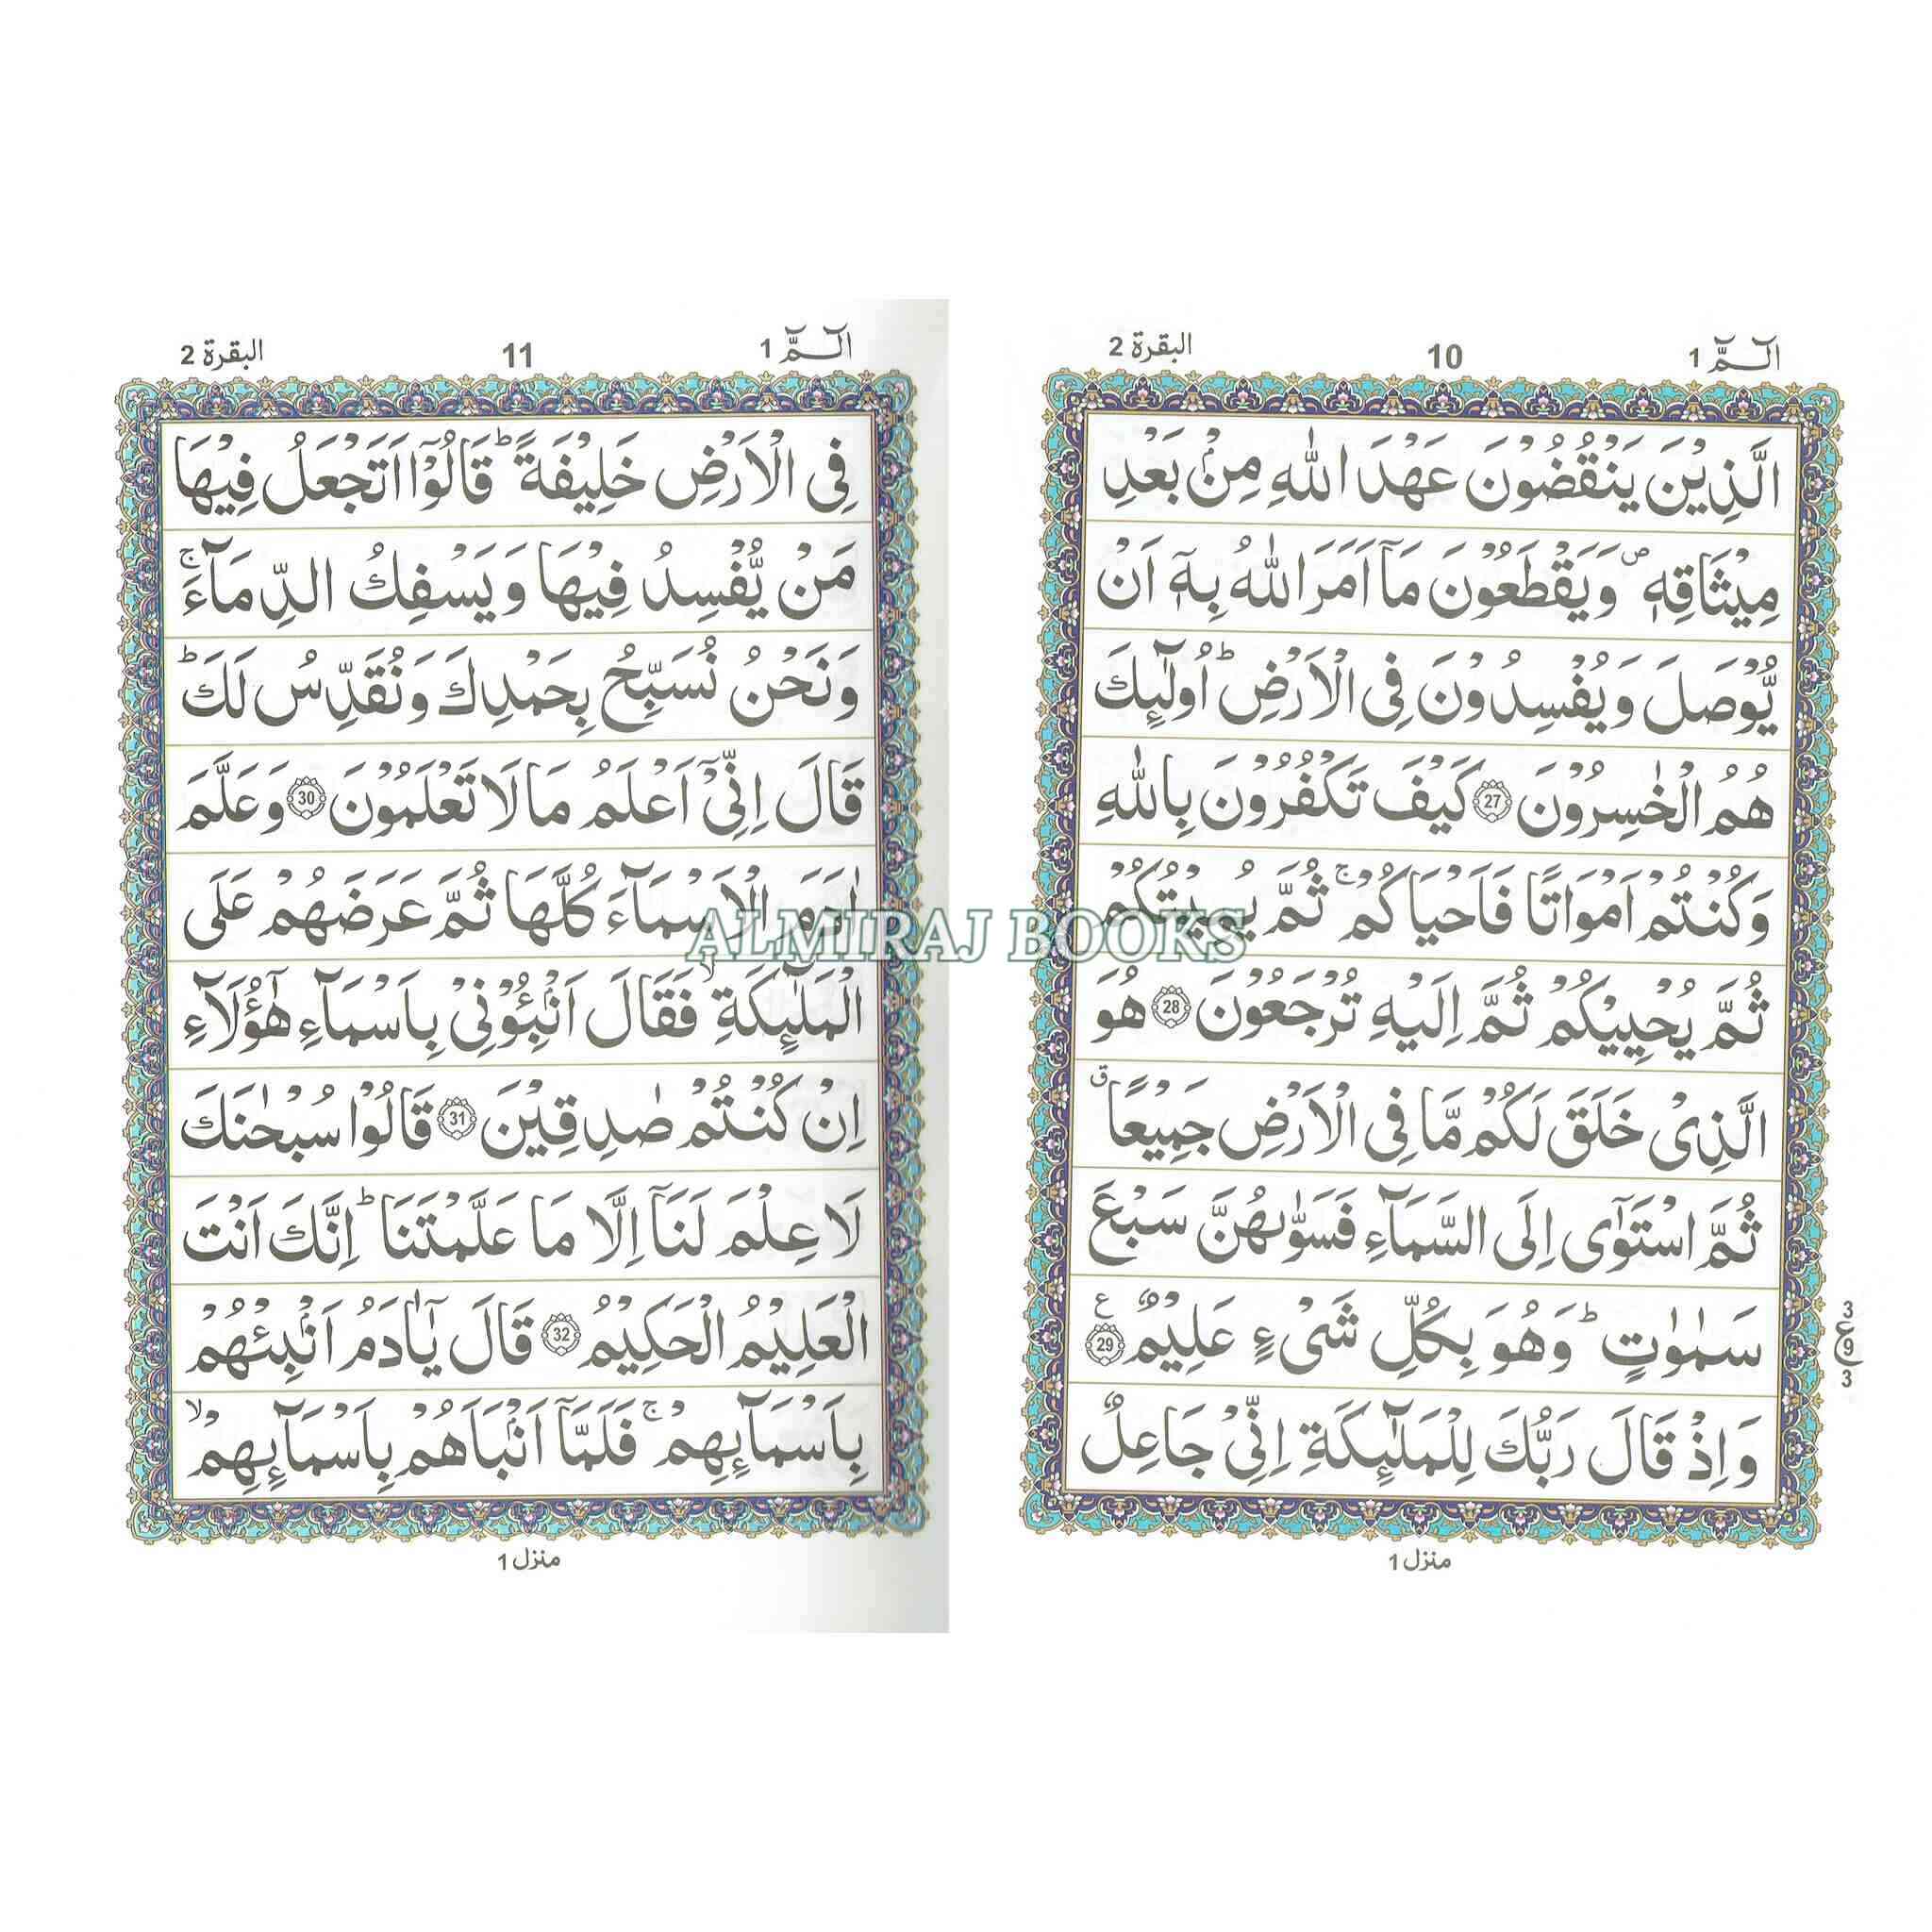 الٓـمّٓ 1
10
البقرة 2
الَّذِیْنَ یَنْقُضُوْنَ عَهْدَ اللّٰهِ مِنْۢ بَعْدِ
مِیْثَاقِهٖ ص وَ یَقْطَعُوْنَ مَاۤ اَمَرَ اللّٰهُ بِهٖۤ اَنْ
یُّوْصَلَ وَ یُفْسِدُوْنَ فِی الْاَرْضِ ؕ اُولٰٓىِٕكَ
هُمُ الْخٰسِرُوْنَ 27 كَیْفَ تَكْفُرُوْنَ بِاللّٰهِ
وَ كُنْتُمْ اَمْوَاتًا فَاَحْیَاكُمْ ۚ ثُمَّ یُمِیْتُكُمْ
ثُمَّ یُحْیِیْكُمْ ثُمَّ اِلَیْهِ تُرْجَعُوْنَ 28 هُوَ
الَّذِیْ خَلَقَ لَكُمْ مَّا فِی الْاَرْضِ جَمِیْعًا ق
ثُمَّ اسْتَوٰۤى اِلَى السَّمَآءِ فَسَوّٰىهُنَّ سَبْعَ
سَمٰوٰتٍ ؕ وَ هُوَ بِكُلِّ شَیْءٍ عَلِیْمٌ ع 29
3 ع 9 3
وَ اِذْ قَالَ رَبُّكَ لِلْمَلٰٓىِٕكَةِ اِنِّیْ جَاعِلٌ
منزل 1
الٓـمّٓ 1
11
البقرة 2
فِی الْاَرْضِ خَلِیْفَةً ؕ قَالُوْۤا اَتَجْعَلُ فِیْهَا
مَنْ یُّفْسِدُ فِیْهَا وَ یَسْفِكُ الدِّمَآءَ ۚ
وَ نَحْنُ نُسَبِّحُ بِحَمْدِكَ وَ نُقَدِّسُ لَكَ ؕ
قَالَ اِنِّیْۤ اَعْلَمُ مَا لَا تَعْلَمُوْنَ 30 وَ عَلَّمَ
اٰدَمَ الْاَسْمَآءَ كُلَّهَا ثُمَّ عَرَضَهُمْ عَلَى
الْمَلٰٓىِٕكَةِ ۙ فَقَالَ اَنْۢبِـُٔوْنِیْ بِاَسْمَآءِ هٰۤؤُلَآءِ
اِنْ كُنْتُمْ صٰدِقِیْنَ 31 قَالُوْا سُبْحٰنَكَ
لَا عِلْمَ لَنَاۤ اِلَّا مَا عَلَّمْتَنَا ؕ اِنَّكَ اَنْتَ
الْعَلِیْمُ الْحَكِیْمُ 32 قَالَ یٰۤاٰدَمُ اَنْۢبِئْهُمْ
بِاَسْمَآىِٕهِمْ ۚ فَلَمَّاۤ اَنْۢبَاَهُمْ بِاَسْمَآىِٕهِمْ ۙ
منزل 1
ALMIRAJ BOOKS